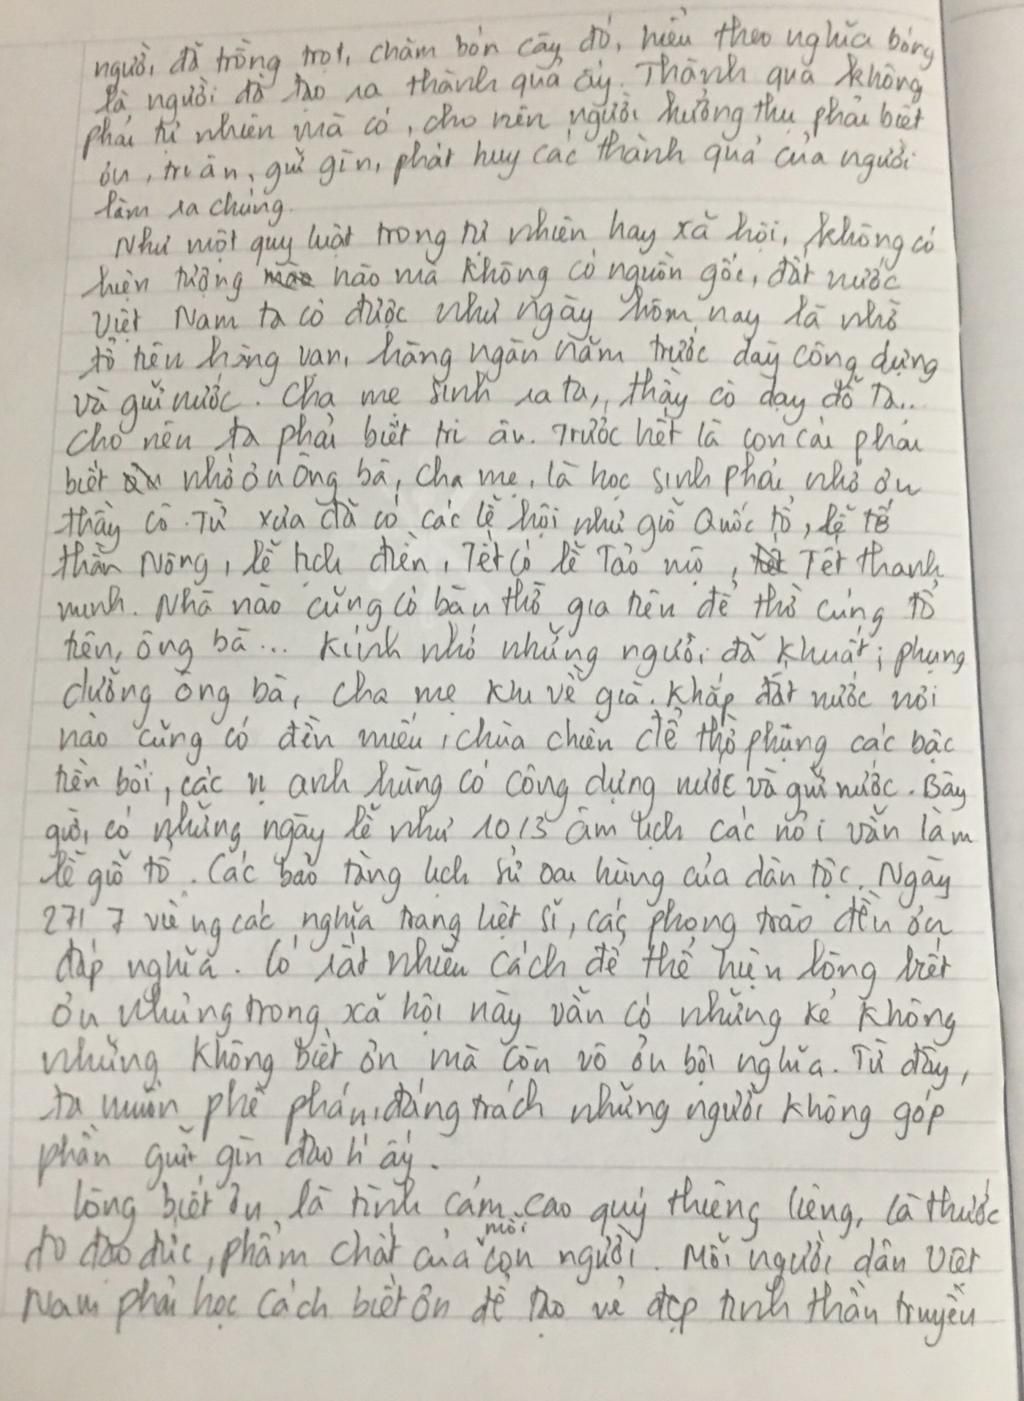 người đã trồng trọt, chăm bón cây đó, hiểu theo nghĩa bóng
là người đã tạo ra thành quả ấy. Thành quả không
phải tự nhiên mà có, cho nên người hưởng thụ phải biết
ơn, tri ân, giữ gìn, phát huy các thành quả của người
làm ra chúng.
Như một quy luật trong tự nhiên hay xã hội, không có
hiện tượng nào mà không có nguồn gốc, đất nước
Việt Nam ta có được như ngày hôm nay là nhờ
tổ tiên hàng vạn, hàng ngàn năm trước dày công dựng
và giữ nước. Cha mẹ sinh ra ta, thầy cô dạy dỗ ta..
cho nên ta phải biết tri ân. Trước hết là con cái phải
biết nhớ ơn ông bà, cha mẹ, là học sinh phải nhớ ơn
thầy cô. Từ xưa đã có các lễ hội như giỗ Quốc tổ, lễ tế
thần Nông, lễ tịch điền, Tết có lễ Tảo mộ, Tết thanh
minh. Nhà nào cũng có bàn thờ gia tiên để thờ cúng tổ
tiên, ông bà... kính nhớ những người đã khuất; phụng
dưỡng ông bà, cha mẹ khi về già. Khắp đất nước nơi
nào cũng có đền miếu, chùa chiền để thờ phụng các bậc
tiền bối, các vị anh hùng có công dựng nước và giữ nước. Bây
giờ, có những ngày lễ như 10/3 âm lịch các nơi vẫn làm
lễ giỗ tổ. Các bảo tàng lịch sử oai hùng của dân tộc. Ngày
27/7 viếng các nghĩa trang liệt sĩ, các phong trào đền ơn
đáp nghĩa. Có rất nhiều cách để thể hiện lòng biết
ơn nhưng trong xã hội này vẫn có những kẻ không
những không biết ơn mà còn vô ơn bội nghĩa. Từ đây,
ta muốn phê phán, đáng trách những người không góp
phần giữ gìn đạo lí ấy.
Lòng biết ơn là tình cảm cao quý thiêng liêng, là thước
đo đạo đức, phẩm chất của mỗi con người. Mỗi người dân Việt
Nam phải học cách biết ơn để tạo vẻ đẹp tinh thần truyền